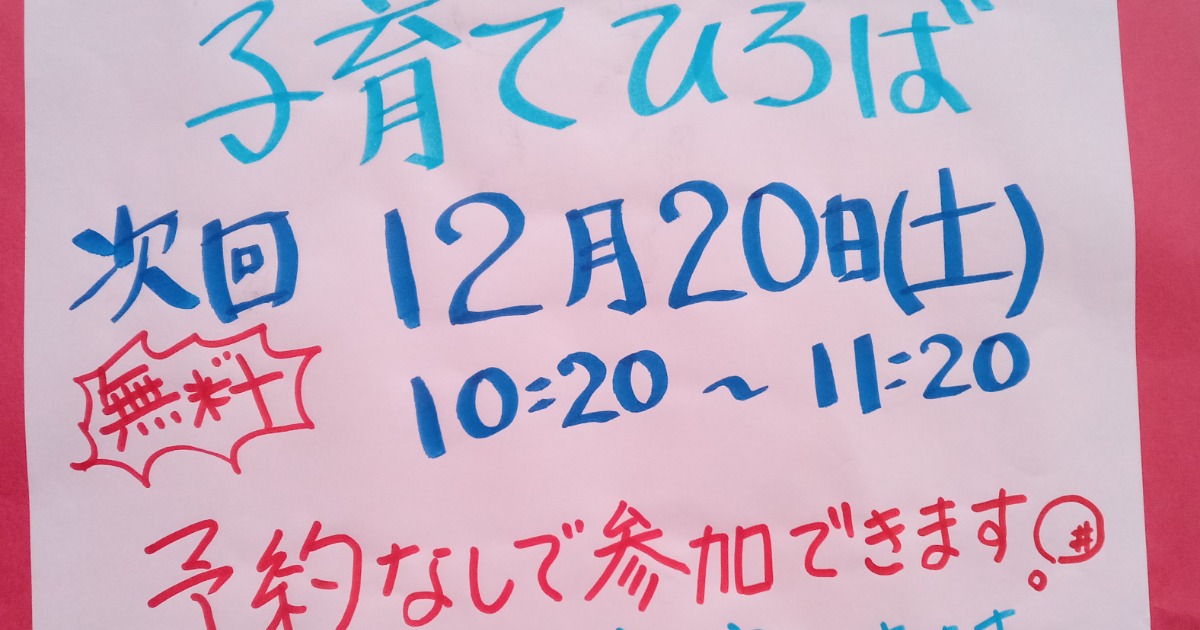 子育てひろば
次回 12月20日(土)
無料 10:20～11:20
予約なしで参加できます。